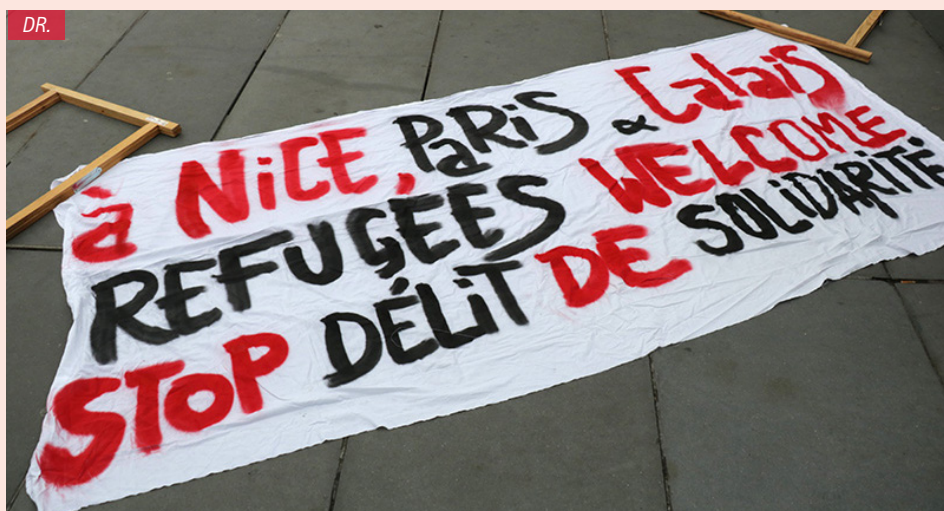 DR.
à NiCE, PaRiS & Calais
REFUGEES WELCOME
STOP DÉLiT DE SOLiDARiTÉ